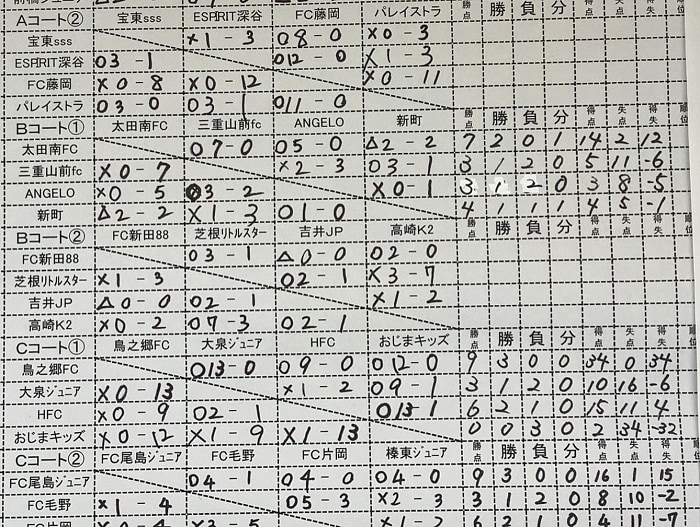 Aコート② 宝東sss ESPIRIT深谷 FC藤岡 パレイストラ 勝点 勝 負 分 得点 失点 得失 順位
宝東sss ×1-3 ○8-0 ×0-3
ESPIRIT深谷 ○3-1 ○12-0 ×1-3
FC藤岡 ×0-8 ×0-12 ×0-11
パレイストラ ○3-0 ○3-1 ○11-0
Bコート① 太田南FC 三重山前fc ANGELO 新町 勝点 勝 負 分 得点 失点 得失 順位
太田南FC ○7-0 ○5-0 △2-2 7 2 0 1 14 2 12
三重山前fc ×0-7 ×2-3 ○3-1 3 1 2 0 5 11 -6
ANGELO ×0-5 ○3-2 ×0-1 3 1 2 0 3 8 -5
新町 △2-2 ×1-3 ○1-0 4 1 1 1 4 5 -1
Bコート② FC新田88 芝根リトルスター 吉井JP 高崎K2 勝点 勝 負 分 得点 失点 得失 順位
FC新田88 ○3-1 △0-0 ○2-0
芝根リトルスター ×1-3 ○2-1 ×3-7
吉井JP △0-0 ○2-1 ×1-2
高崎K2 ×0-2 ○7-3 ○2-1
Cコート① 鳥之郷FC 大泉ジュニア HFC おじまキッズ 勝点 勝 負 分 得点 失点 得失 順位
鳥之郷FC ○13-0 ○9-0 ○12-0 9 3 0 0 34 0 34
大泉ジュニア ×0-13 ×1-2 ○9-1 3 1 2 0 10 16 -6
HFC ×0-9 ○2-1 ○13-1 6 2 1 0 15 11 4
おじまキッズ ×0-12 ×1-9 ×1-13 0 0 3 0 2 34 -32
Cコート② FC尾島ジュニア FC毛野 FC片岡 榛東ジュニア 勝点 勝 負 分 得点 失点 得失 順位
FC尾島ジュニア ○4-1 ○4-0 ○4-0 9 3 0 0 16 1 15
FC毛野 ×1-4 ○5-3 ×2-3 3 1 2 0 8 10 -2
FC片岡 ×0-4 ×3-5 ×1-2 6 2 1 0 4 11 -7